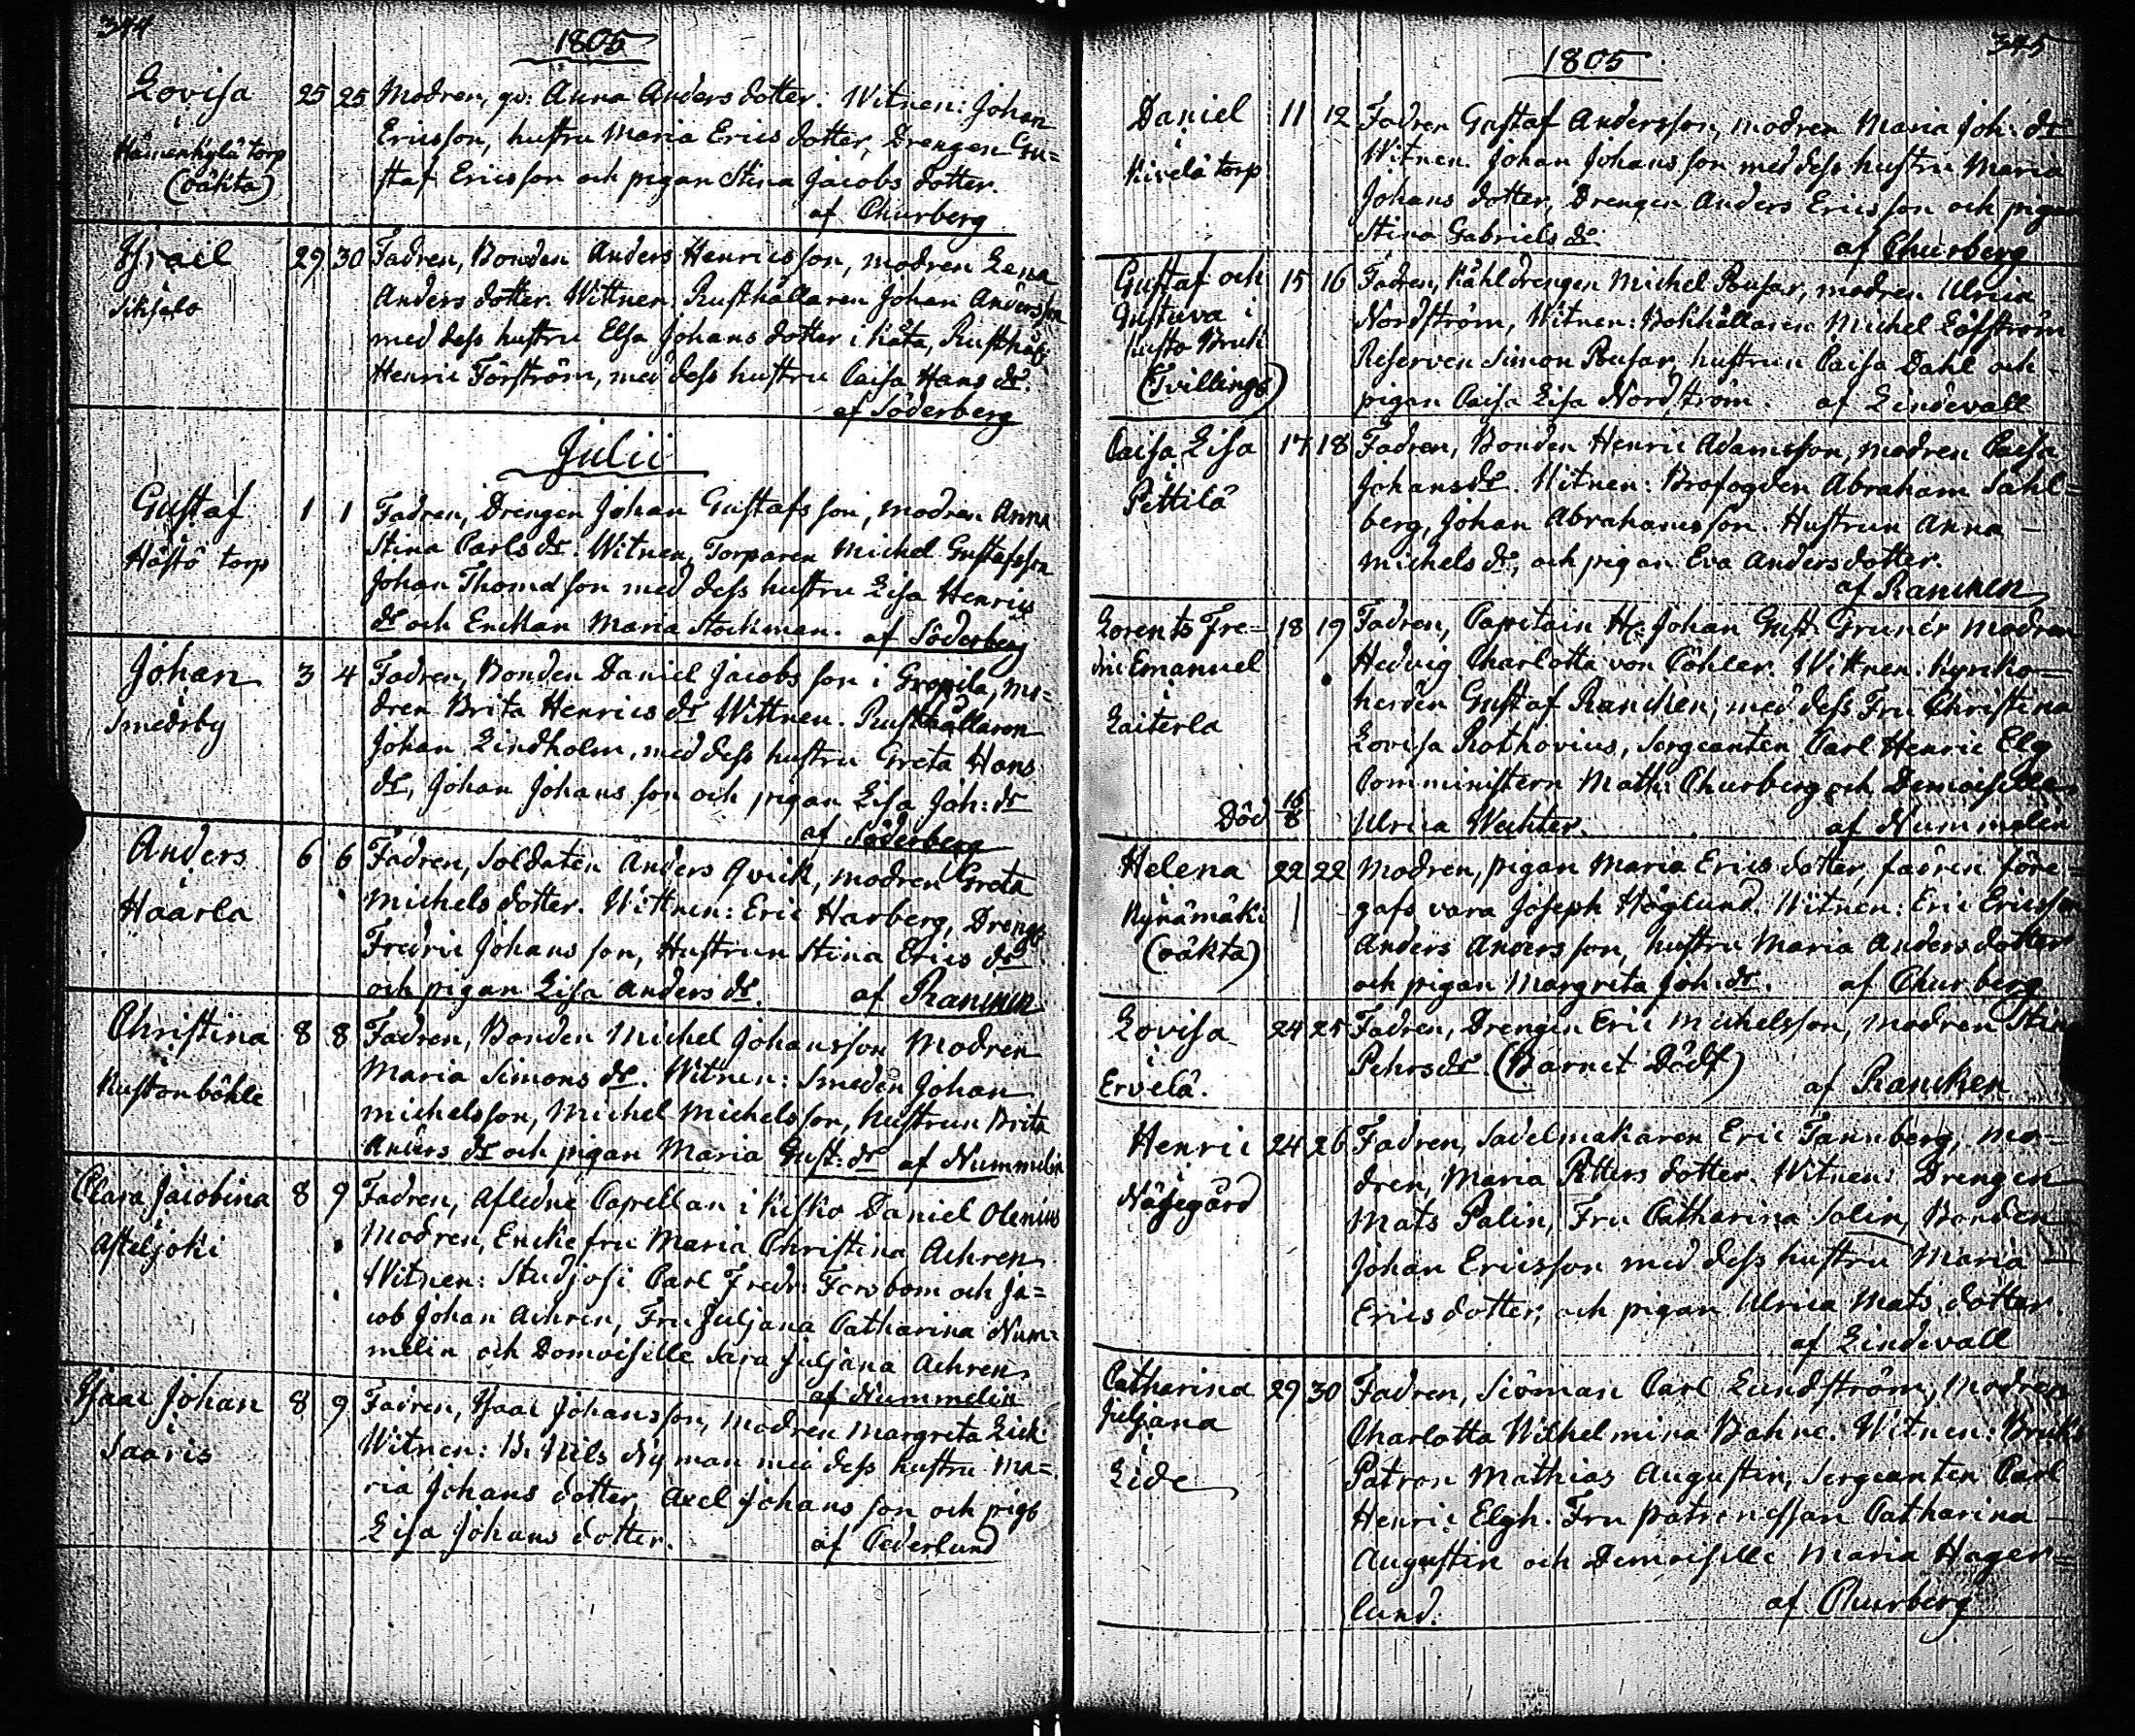 344
1805
Lovisa
i
Hämenkylä torp
(oäkta)
25 25
Modren, qv: Anna Anders dotter. Witnen: Johan
Ericsson, hustru Maria Erics dotter, Drengen Gu=
staf Ericsson och pigan Stina Jacobs dotter.
af Churberg
Israel
i
Siksalo
29 30
Fadren, Bonden Anders Henricsson, modren Lena
Anders dotter. Wittnen: Rusthållaren Johan Andersson
med dess hustru Elsa Johans dotter i Kåta, Rusthålls
Henric Törström, med dess hustru Caisa Hans dr.
af Söderberg
Julii
Gustaf
i
Hästö torp
1 1
Fadren, Drengen Johan Gustafsson, modren Anna
Stina Carls dr. Witnen, Torparen Michel Gustafsson
Johan Thomasson med dess hustru Lisa Henrics
dr och Enckan Maria Stockman. af Söderberg
Johan
i
Smedsby
3 4
Fadren, Bonden Daniel Jacobsson i Gropila, mo=
dren Brita Henrics dr Wittnen. Rusthållaren
Johan Lindholm, med dess hustru Greta Hans
dr, Johan Johansson och pigan Lisa Joh: dr
af Söderberg
Anders
i
Haarla
6 6
Fadren, Soldaten Anders Qvick, modren Greta
Michels dotter. Wittnen: Eric Harberg, Drengs
Fredric Johansson, Hustrun Stina Erics dr
och pigan Lisa Anders dr. af Rancken
Christina
i
Kustonböhle
8 8
Fadren, Bonden Michel Johansson Modren
Maria Simons dr. Witnen: Smeden Johan
Michelsson, Michel Michelsson, Hustrun Brita
Anders dr och pigan Maria Gust: dr af Nummelin
Clara Jacobina
i
Asteljoki
8 9
Fadren, Afledne Capellan i Kisko Daniel Olenius
Modren, Enckefru Maria Christina Achren
Witnen: Studjosi Carl Fredr: Forsbom och Ja=
cob Johan Achren, Fru Juljana Catharina Num=
melin och Domoiselle Sara Juljana Achren
af Nummelin
Isaac Johan
i
Saaris
8 9
Fadren, Isaac Johansson, modren Margreta Eick
Witnen: B. Nils Nyman med dess hustru Ma=
ria Johans dotter, Axel Johansson och pigs
Lisa Johans dotter. af Cederlund
345
1805
Daniel
i
Kivelä torp
11 12
Fadren Gustaf Andersson, modren Maria Joh: dr
Witnen. Johan Johansson med dess hustru Maria
Johans dotter, Drengen Anders Ericsson och pigan
Stina Gabriels dr.
af Churberg
Gustaf och
Gustava i
Kusto Bruk
(Tvillingr)
15 16
Fadren, Kåhldrengen Michel Pousar, modren Ulrica
Nordström, Witnen: Bokhållaren Michel Löfström
Reserven Simon Pousar, hustrun Caisa Dahl och
pigan Caisa Lisa Nordström. af Lindevall
Caisa Lisa
i
Pettilä
17 18
Fadren, Bonden Henric Adamsson, modren Caisa
Johans dr. Witnen: Brofogden Abraham Sahl=
berg, Johan Abrahamsson. Hustrun Anna
Michels dr, och pigan Eva Anders dotter.
af Rancken
Lorents Fre=
dric Emanuel
i
Laiterla
Död 16/8
18 19
Fadren, Capitain Hr: Johan Gust. Gruner modren
Hedvig Charlotta von Cöhler. Wittnen: Kyrko=
herden Gustaf Rancken, med dess Fru Christina
Lovisa Rothovius, Sergeanten Carl Henric Elg
Comministern Math: Churberg och Demoiselle
Ulrica Wechter. af Nummelin
Helena
i
Kynämäki
(oäkta)
22 22
Modren, pigan Maria Erics dotter, fadren före=
gafs vara Joseph Höglund. Witnen: Eric Ericsson
Anders Andersson, hustru Maria Anders dotter
och pigan Margreta Joh: dr. af Churberg
Lovisa
i
Ervelä.
24 25
Fadren, Drengen Eric Michelsson, modren Stina
Pehrs dr. (Barnet Dödt)
af Rancken
Henric
i
Näsegård
24 26
Fadren, Sadelmakaren Eric Tannberg, mo=
dren, Maria Petters dotter. Witnen: Drengen
Mats Palin, Fru Catharina Solin, Bonden
Johan Ericsson med dess hustru Maria
Erics dotter, och pigan Ulrica Mats dotter.
af Lindevall
Catharina
Juljana
i
Lide
29 30
Fadren, Siöman Carl Lundström, Modren
Charlotta Wilhelmina Bohne. Witnen: Bruks
Patron Mathias Augustin, Sergeanten Carl
Henric Elgh. Fru patronessan Catharina
Augustin och Demoiselle Maria Hager=
lund.
af Churberg